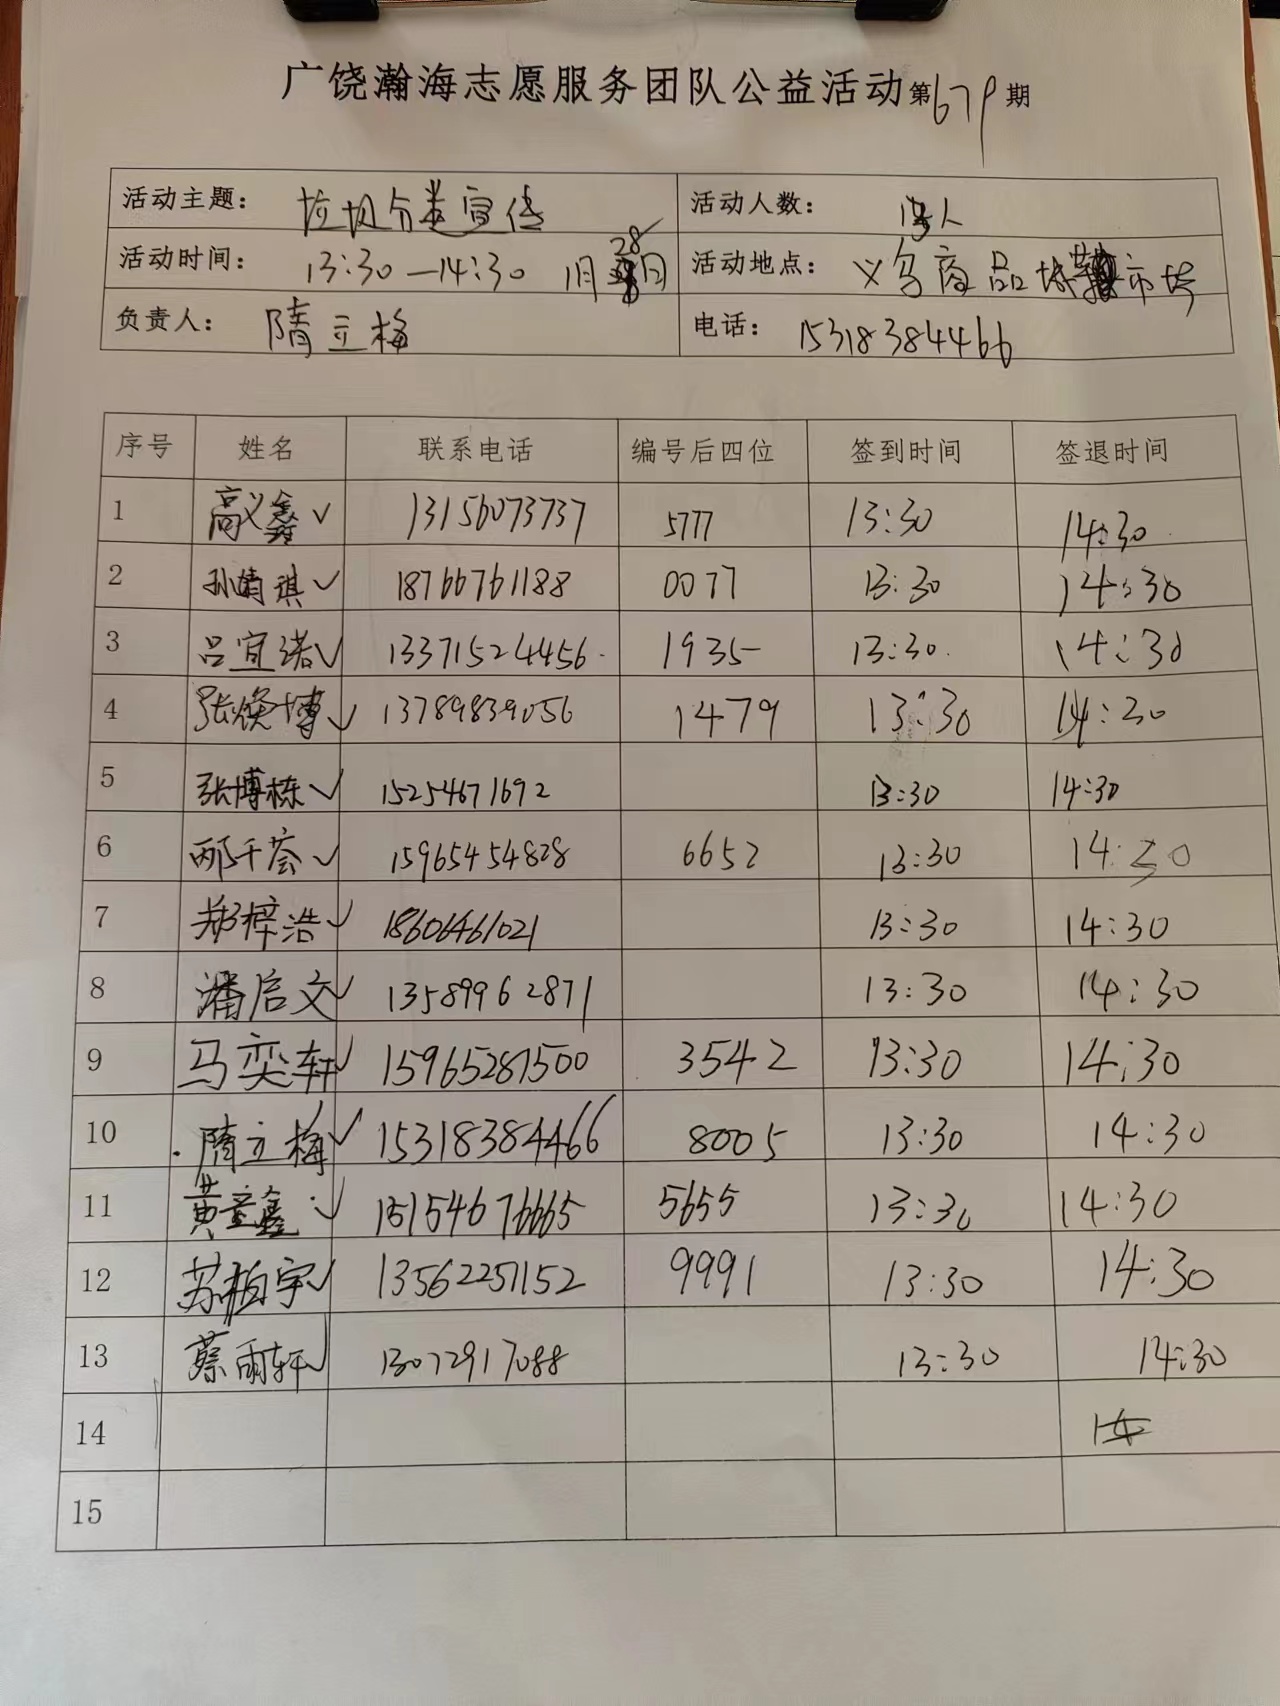 广饶瀚海志愿服务团队公益活动第679期
活动主题: 垃圾分类宣传 活动人数: 人
活动时间: 13:30—14:30 1月28日 活动地点: 义乌商品城 市场
负责人: 隋立梅 电话: 15318384466
序号 姓名 联系电话 编号后四位 签到时间 签退时间
1 高义鑫✓ 13156073737 5777 13:30 14:30
2 孙靖琪✓ 18766761188 0077 13:30 14:30
3 吕宜诺✓ 13371524456 1935 13:30 14:30
4 张焕博✓ 13789839056 1479 13:30 14:30
5 张博栋✓ 15254671692 13:30 14:30
6 邴千荟✓ 15965454828 6652 13:30 14:30
7 郑梓浩✓ 18606461021 13:30 14:30
8 潘启文✓ 13589962871 13:30 14:30
9 马奕轩✓ 15965287500 3542 13:30 14:30
10 隋立梅✓ 15318384466 8005 13:30 14:30
11 黄童鑫✓ 15154676665 5655 13:30 14:30
12 苏柏宇✓ 13562257152 9991 13:30 14:30
13 蔡雨轩✓ 13072917088 13:30 14:30
14
15